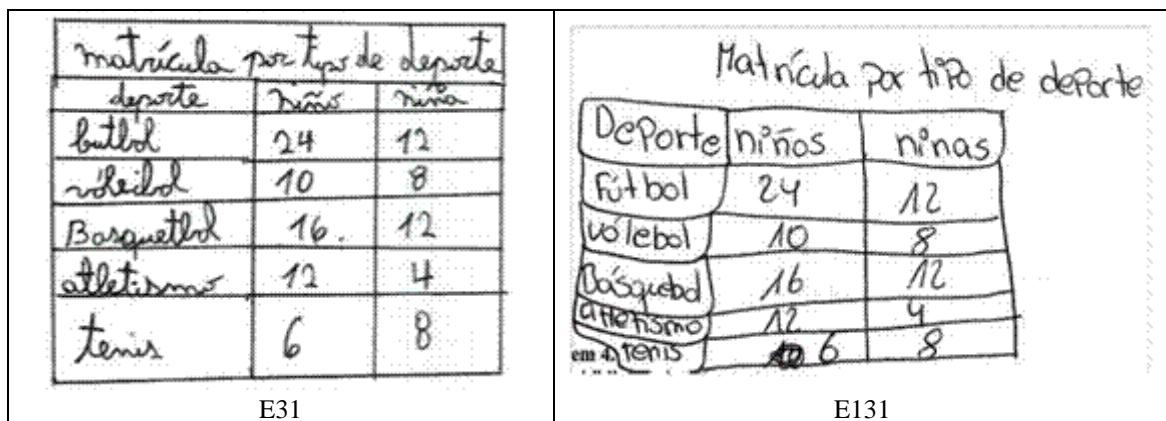 matrícula por tipo de deporte
deporte niño niña
futbol 24 12
vóleibol 10 8
Basquetbol 16. 12
atletismo 12 4
tenis 6 8
E31
Matrícula por tipo de deporte
Deporte niños ninas
Fútbol 24 12
vólebol 10 8
Básquebol 16 12
atletismo 12 4
em 4. tenis 6 8
E131